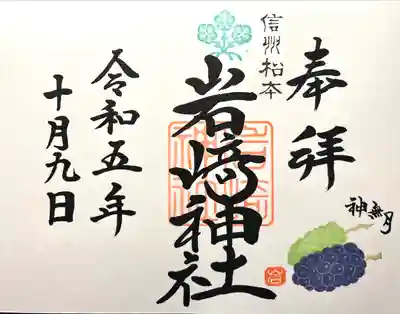 奉拝
神無月
信州松本
岩﨑神社
令和五年
十月九日